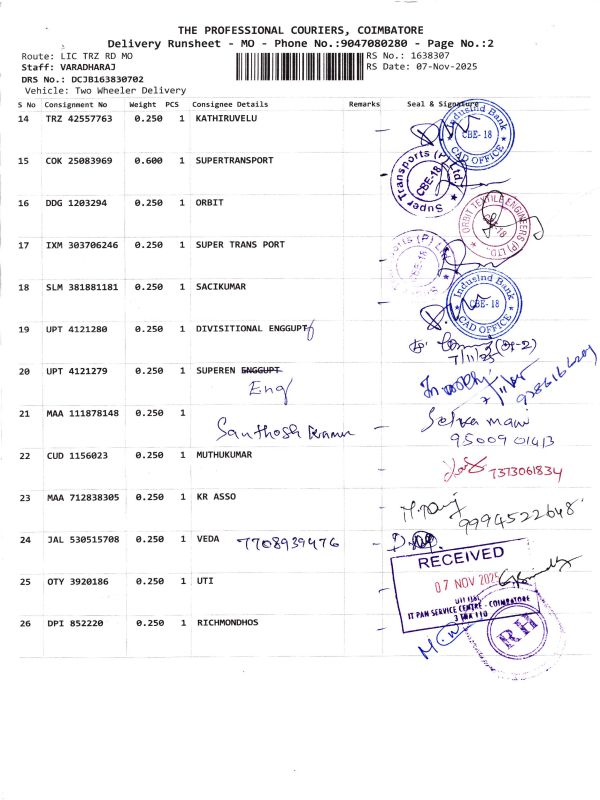 THE PROFESSIONAL COURIERS, COIMBATORE
Delivery Runsheet - MO - Phone No.:9047080280 - Page No.:2
Route: LIC TRZ RD MO
RS No.: 1638307
Staff: VARADHARAJ
RS Date: 07-Nov-2025
DRS No.: DCJB163830702
Vehicle: Two Wheeler Delivery
S No Consignment No Weight PCS Consignee Details Remarks Seal & Signature
14 TRZ 42557763 0.250 1 KATHIRUVELU
IndusInd Bank CBE-18 CAD OFFICE
15 COK 25083969 0.600 1 SUPERTRANSPORT
Super Transports (P) Ltd. CBE-18
16 DDG 1203294 0.250 1 ORBIT
ORBIT TEXTILE ENGINEERS (P) LTD.
17 IXM 303706246 0.250 1 SUPER TRANS PORT
18 SLM 381881181 0.250 1 SACIKUMAR
IndusInd Bank CBE-18 CAD OFFICE
19 UPT 4121280 0.250 1 DIVISITIONAL ENGGUPT
7/11/25
20 UPT 4121279 0.250 1 SUPEREN ENGGUPT
Eng
21 MAA 111878148 0.250 1
Santhosh Kumar
Selva mani
9500901413
22 CUD 1156023 0.250 1 MUTHUKUMAR
7373061834
23 MAA 712838305 0.250 1 KR ASSO
9994522648
24 JAL 530515708 0.250 1 VEDA 7708939476
25 OTY 3920186 0.250 1 UTI
RECEIVED
07 NOV 2025
IT PAN SERVICE CENTRE - COIMBATORE
26 DPI 852220 0.250 1 RICHMONDHOS
RH